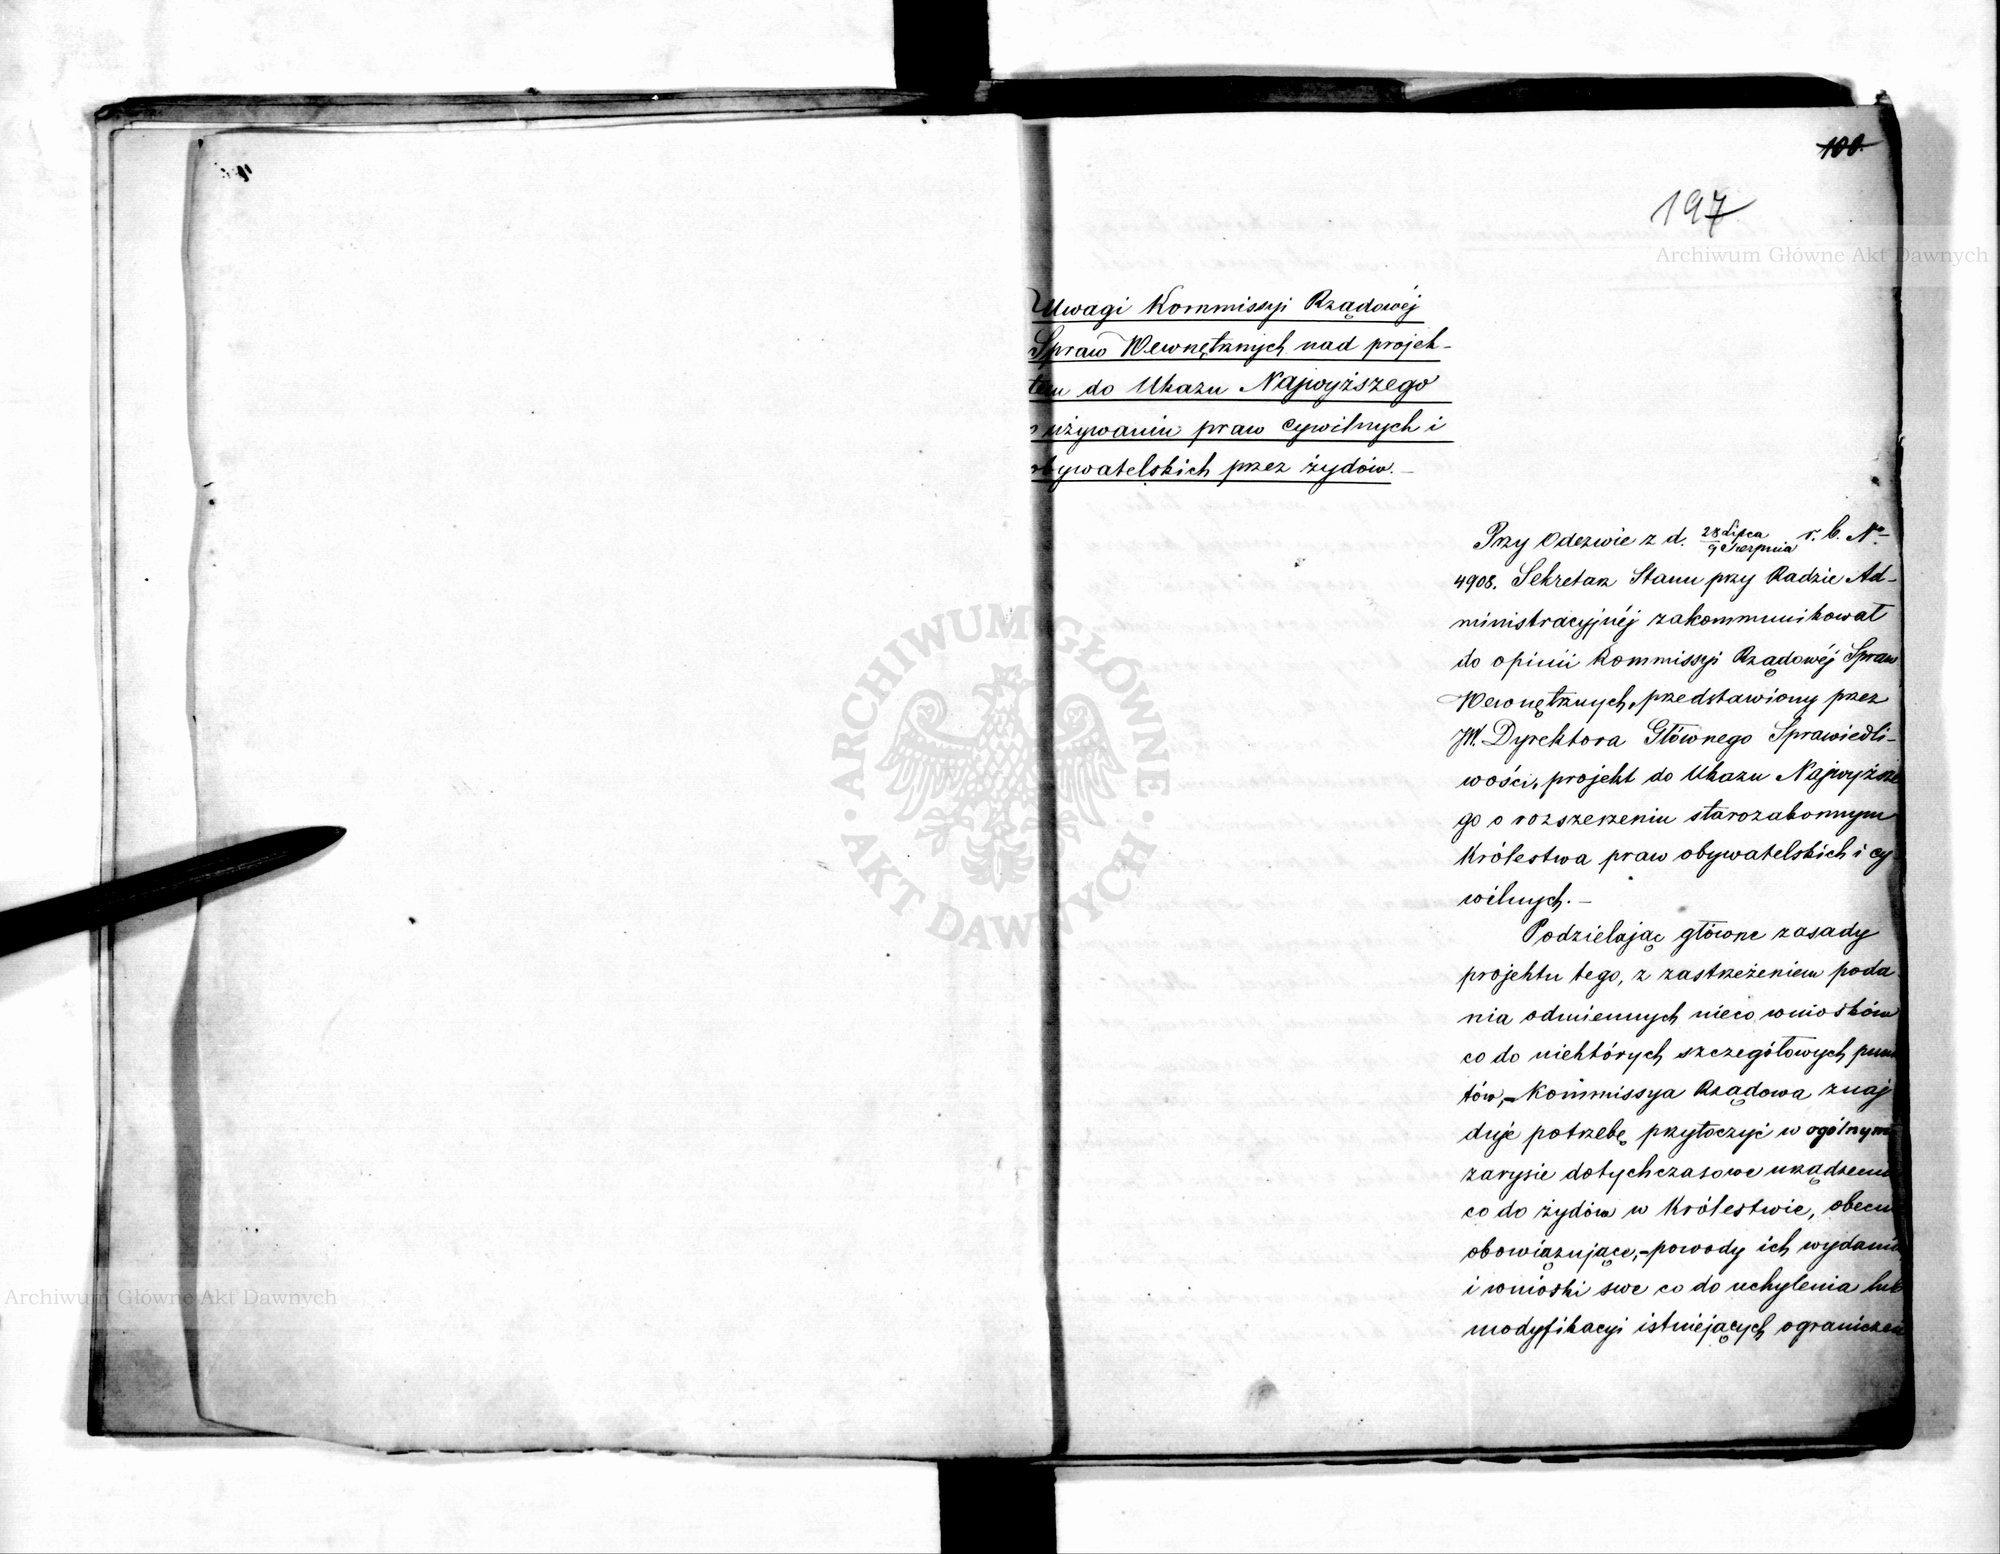 100.
197
Uwagi Kommissyi Rządowéj
Spraw Wewnętrznych nad projek-
tem do Ukazu Najwyższego
o używaniu praw cywilnych i
obywatelskich przez żydów. —
Przy Odezwie z d. 28 Lipca / 9 Sierpnia r. b. No
4908. Sekretarz Stanu przy Radzie Ad-
ministracyjnéj zakommunikował
do opinii Kommissyi Rządowéj Spraw
Wewnętrznych, przedstawiony przez
JW. Dyrektora Głównego Sprawiedli-
wości, projekt do Ukazu Najwyższe
go o rozszerzeniu starozakonnym
Królestwa praw obywatelskich i cy-
wilnych. —
Podzielając główne zasady
projektu tego, z zastrzeżeniem poda
nia odmiennych nieco wniosków
co do niektórych szczegółowych punk
tów, – Kommissya Rządowa znaj
duje potrzebę przytoczyć w ogólnym
zarysie dotychczasowe urządzenia
co do żydów w Królestwie, obecnie
obowiązujące, – powody ich wydania
i wnioski swe co do uchylenia lub
modyfikacyi istniejących ograniczeń
Archiwum Główne Akt Dawnych
Archiwum Główne Akt Dawnych
ARCHIWUM GŁÓWNE
AKT DAWNYCH